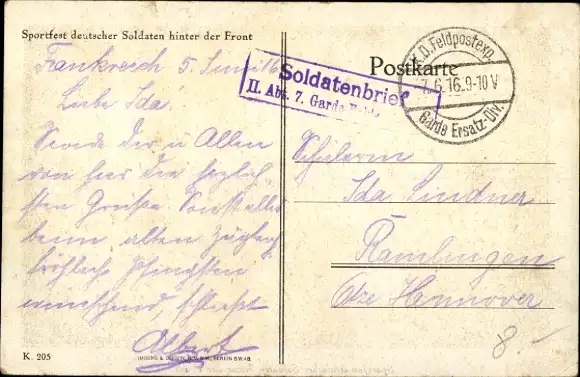 Sportfest deutscher Soldaten hinter der Front
Frankreich 5. Juni 16
Liebe Ida.
Sende dir u Allen
von hier die herzlich-
sten Grüße. Sonst alles
beim alten
fröhliche Pfingsten
wünschend,
Albert
K. 205
Soldatenbrief
II. Abt. 7. Garde
Postkarte
K.D. Feldpostexp.
7.6.16. 9-10 V
Garde Ersatz-Div.
Schülerin
Ida Lindner
Ramlingen
Hannover
8.-